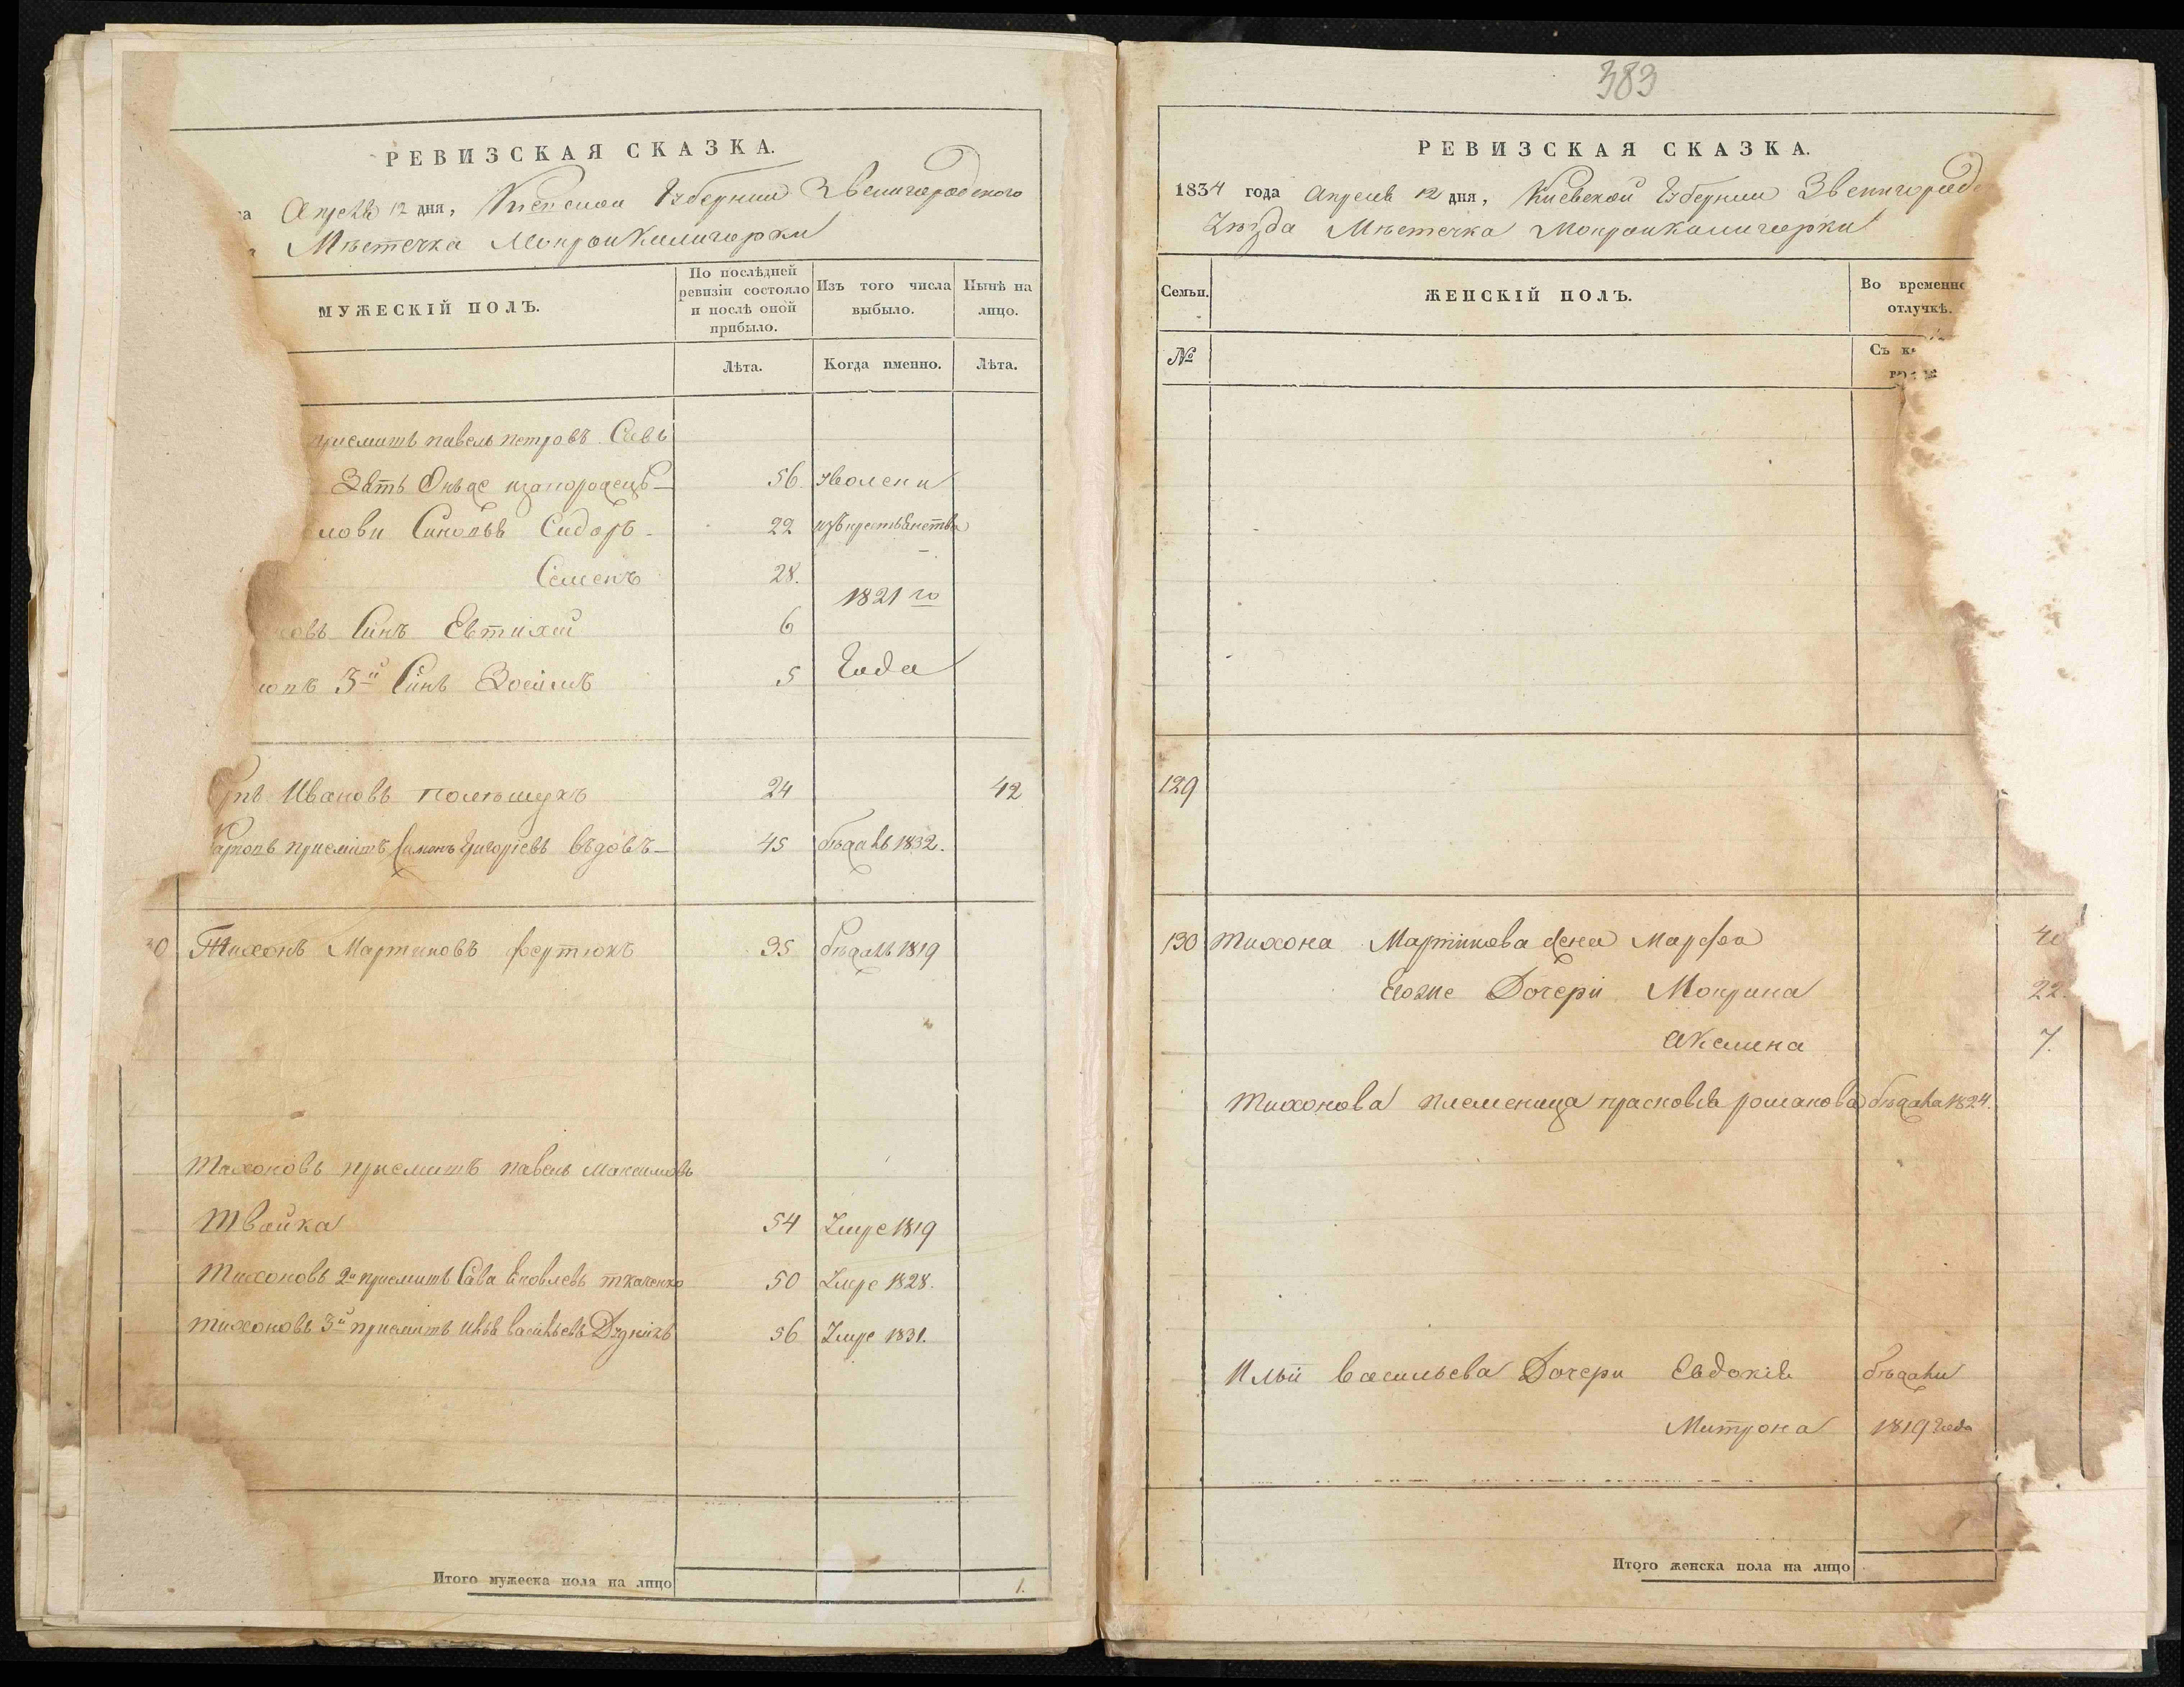 383
РЕВИЗСКАЯ СКАЗКА.
Апреля 12 дня, Киевской Губернии Звенигородского
Мѣстечка Мокройкалигорки
МУЖЕСКІЙ ПОЛЪ.
По послѣдней ревизіи состояло и послѣ оной прибыло.
Изъ того числа выбыло.
Нынѣ на лицо.
Лѣта.
Когда именно.
Лѣта.
приемитъ павелъ петровъ
Зять 56
Синовья Сидоръ 22
Семенъ 28. 1821 го
Синъ Евтихий 6
3й Синъ 5 Года
Ивановъ полѣщукъ 24 42
приемитъ Симонъ Григориевъ 45 бѣжалъ 1832.
30 Тихонъ Мартиновъ фертюкъ 35 бѣжалъ 1819
Тихоновъ приемитъ павелъ Максимовъ
Швайка 54 Умре 1819
Тихоновъ 2й приемитъ Сава Яковлевъ ткаченко 50 Умре 1828.
тихоновъ 3й приемитъ Илья васильевъ Дудникъ 56 Умре 1831.
Итого мужеска пола на лицо 1.
РЕВИЗСКАЯ СКАЗКА.
1834 года Апреля 12 дня, Киевской Губернии Звенигородс
Уѣзда Мѣстечка Мокройкалигорки
Семьи.
ЖЕНСКІЙ ПОЛЪ.
Во временно
отлучкѣ.
№
Съ к
129
130 Тихона Мартинова жена Марфа 40
Егоже Дочери Мокрина 22.
Акелина 7.
Тихонова племеница прасковия романова бѣжала 1824.
Ильи васильева Дочери Евдокия бѣжали
Митрона 1819 года
Итого женска пола на лицо